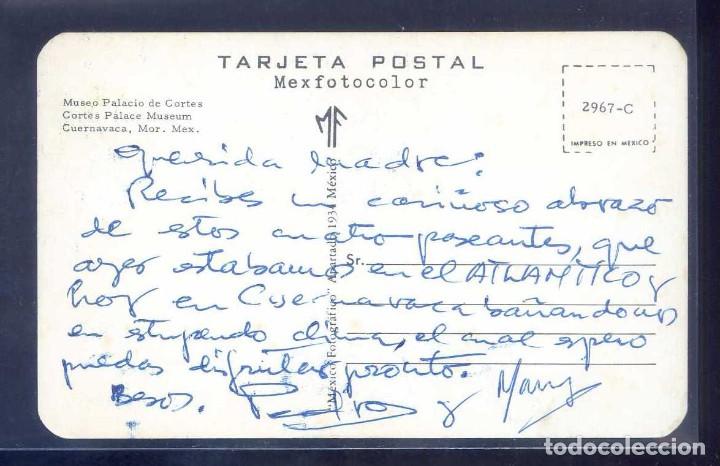 TARJETA POSTAL
Mexfotocolor
Museo Palacio de Cortes
Cortes Palace Museum
Cuernavaca, Mor. Mex.
MF
2967-C
IMPRESO EN MEXICO
Querida madre:
Recibes un cariñoso abrazo
de estos cuatro paseantes, que
ayer estabamos en el ATLANTICO y
hoy en Cuernavaca bañandonos
en estupendo clima, el cual espero
puedas disfrutar pronto.
Besos. Pedro y Mary
Sr.
"México Fotográfico" Apartado 1934 México
todocoleccion.net